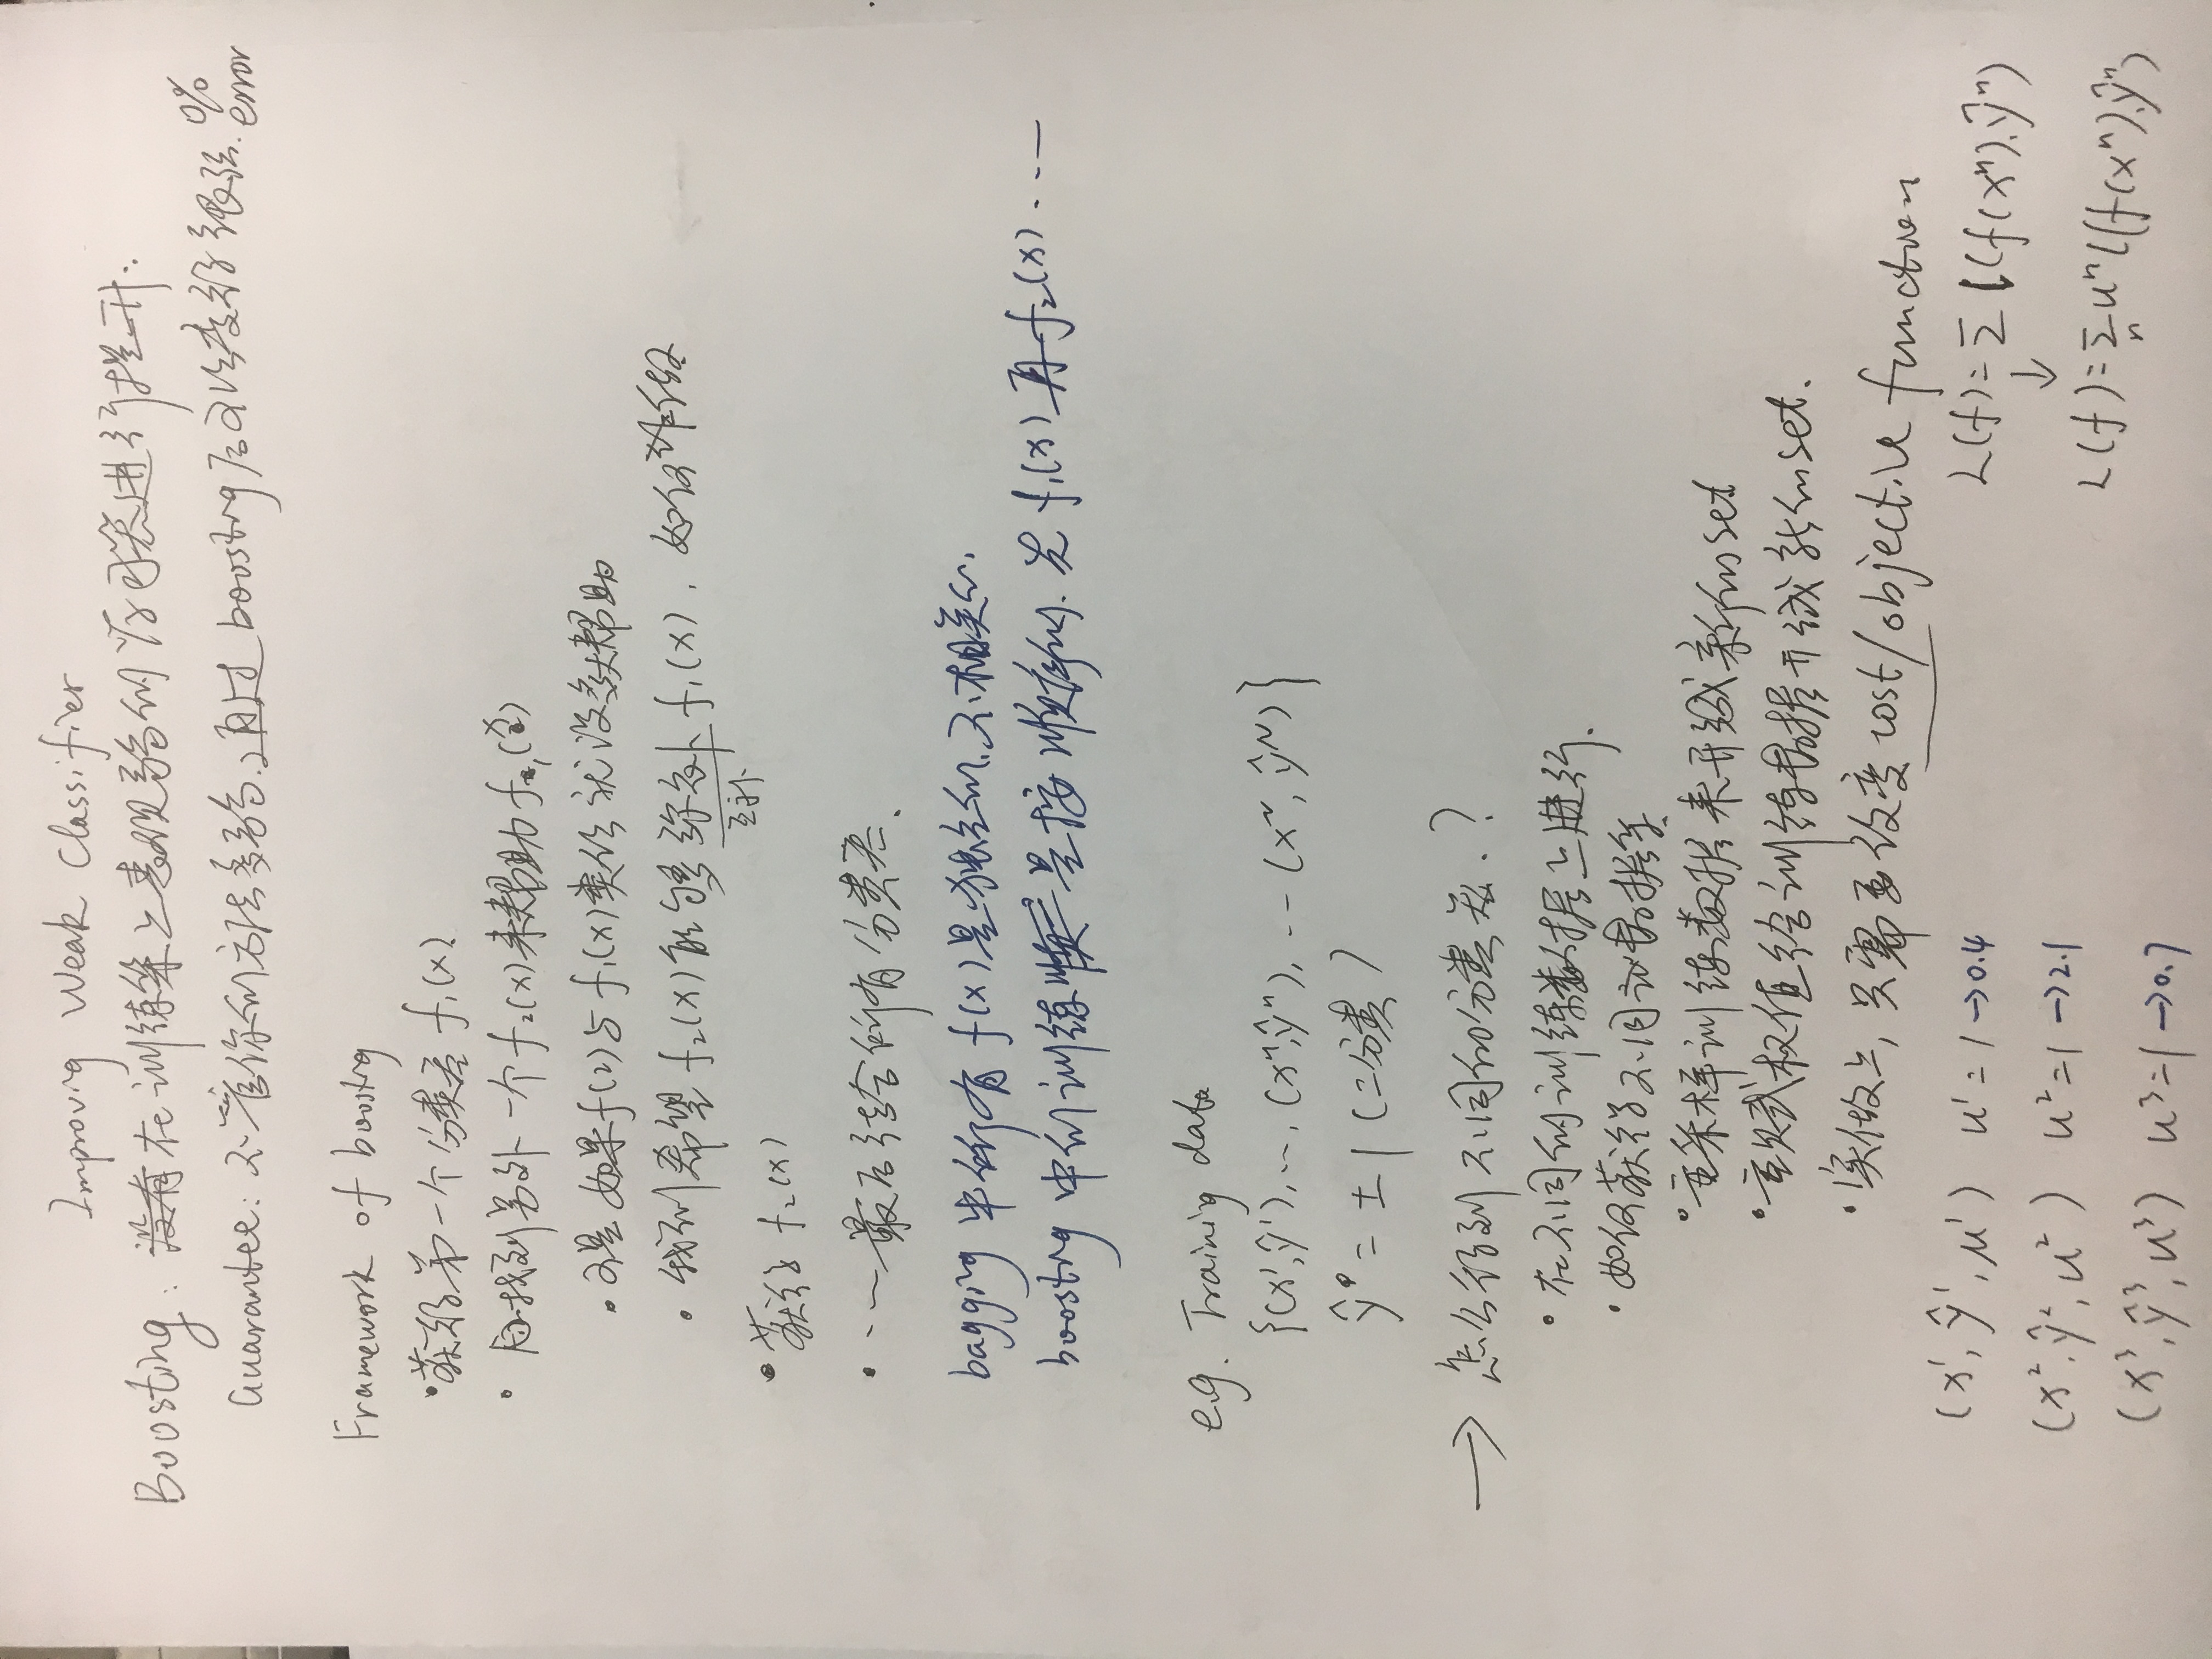 Improving Weak Classifier
Boosting: 没有在训练集上表现弱的分类器进行提升.
Guarantee: 不管你的方法多弱,通过 boosting后可以变得很强. 0% error
Framework of boosting
• 获得第一个分类器 f₁(x)
• 找到另外一个 f₂(x)来帮助 f₁(x)
• 可是如果f(2)与 f₁(x)类似 就没多大帮助
• 我们希望 f₂(x)能够 弥补 f₁(x), 如何做
互补
• 获得 f₂(x)
• ... 最后结合所有分类器.
bagging 中所有 f(x)是独立的.不相关的.
boosting 中的训练 是按顺序的. 先 f₁(x) 再 f₂(x) ....
e.g. Training data
{(x¹,ŷ¹), ..., (xⁿ,ŷⁿ), ... (xᴺ, ŷᴺ)}
ŷ = ±1 (二分类)
→ 怎么得到 不同的分类器.?
• 在不同的训练数据上进行.
• 如何获得不同训数据集
• 重采样训练数据来形成新的set
• 重赋权值给训练数据形成新的set.
• 实做上, 只需要改变 cost/objective function
(x¹, ŷ¹, u¹) u¹ = 1 → 0.4
L(f) = Σ l(f(xⁿ), ŷⁿ)
↓
(x², ŷ², u²) u² = 1 → 2.1
L(f) = Σₙ uⁿ l(f(xⁿ), ŷⁿ)
(x³, ŷ³, u³) u³ = 1 → 0.7